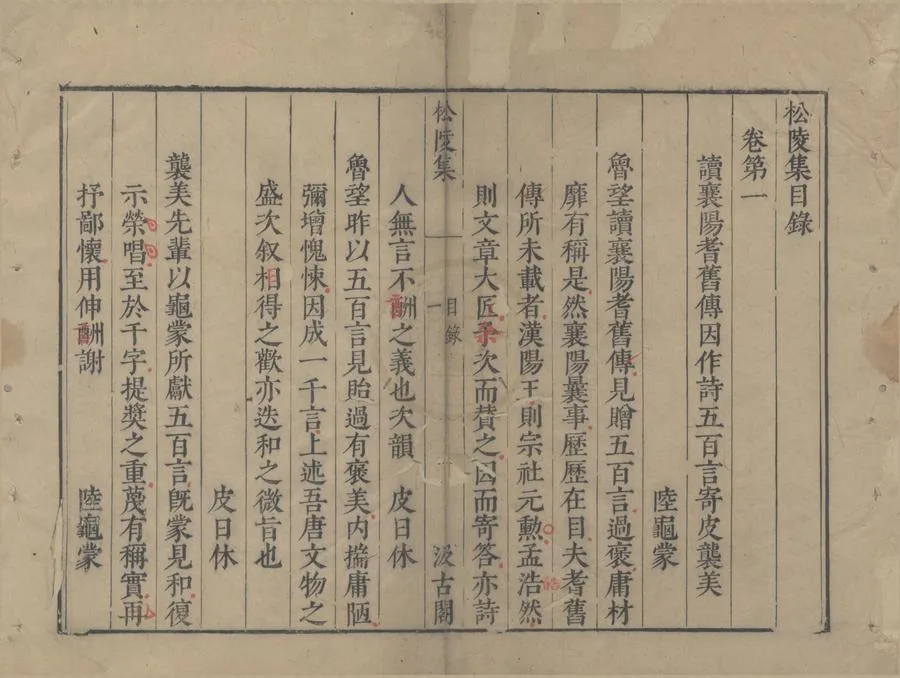 松陵集目錄
卷第一
讀襄陽耆舊傳因作詩五百言寄皮襲美
陸龜蒙
魯望讀襄陽耆舊傳見贈五百言過褒庸材
靡有稱是然襄陽曩事歷歷在目夫耆舊
傳所未載者漢陽王則宗社元勲孟浩然
浩
則文章大匠予次而賛之因而寄答亦詩
松陵集
目錄
一
汲古閣
人無言不酬之義也次韻 皮日休
魯望昨以五百言見貽過有褒美内揣庸陋
彌增愧悚因成一千言上述吾唐文物之
盛次叙相得之歡亦迭和之微旨也
皮日休
襲美先輩以龜蒙所獻五百言旣蒙見和復
示榮唱至於千字提奬之重蔑有稱實再
抒鄙懷用伸酬謝 陸龜蒙